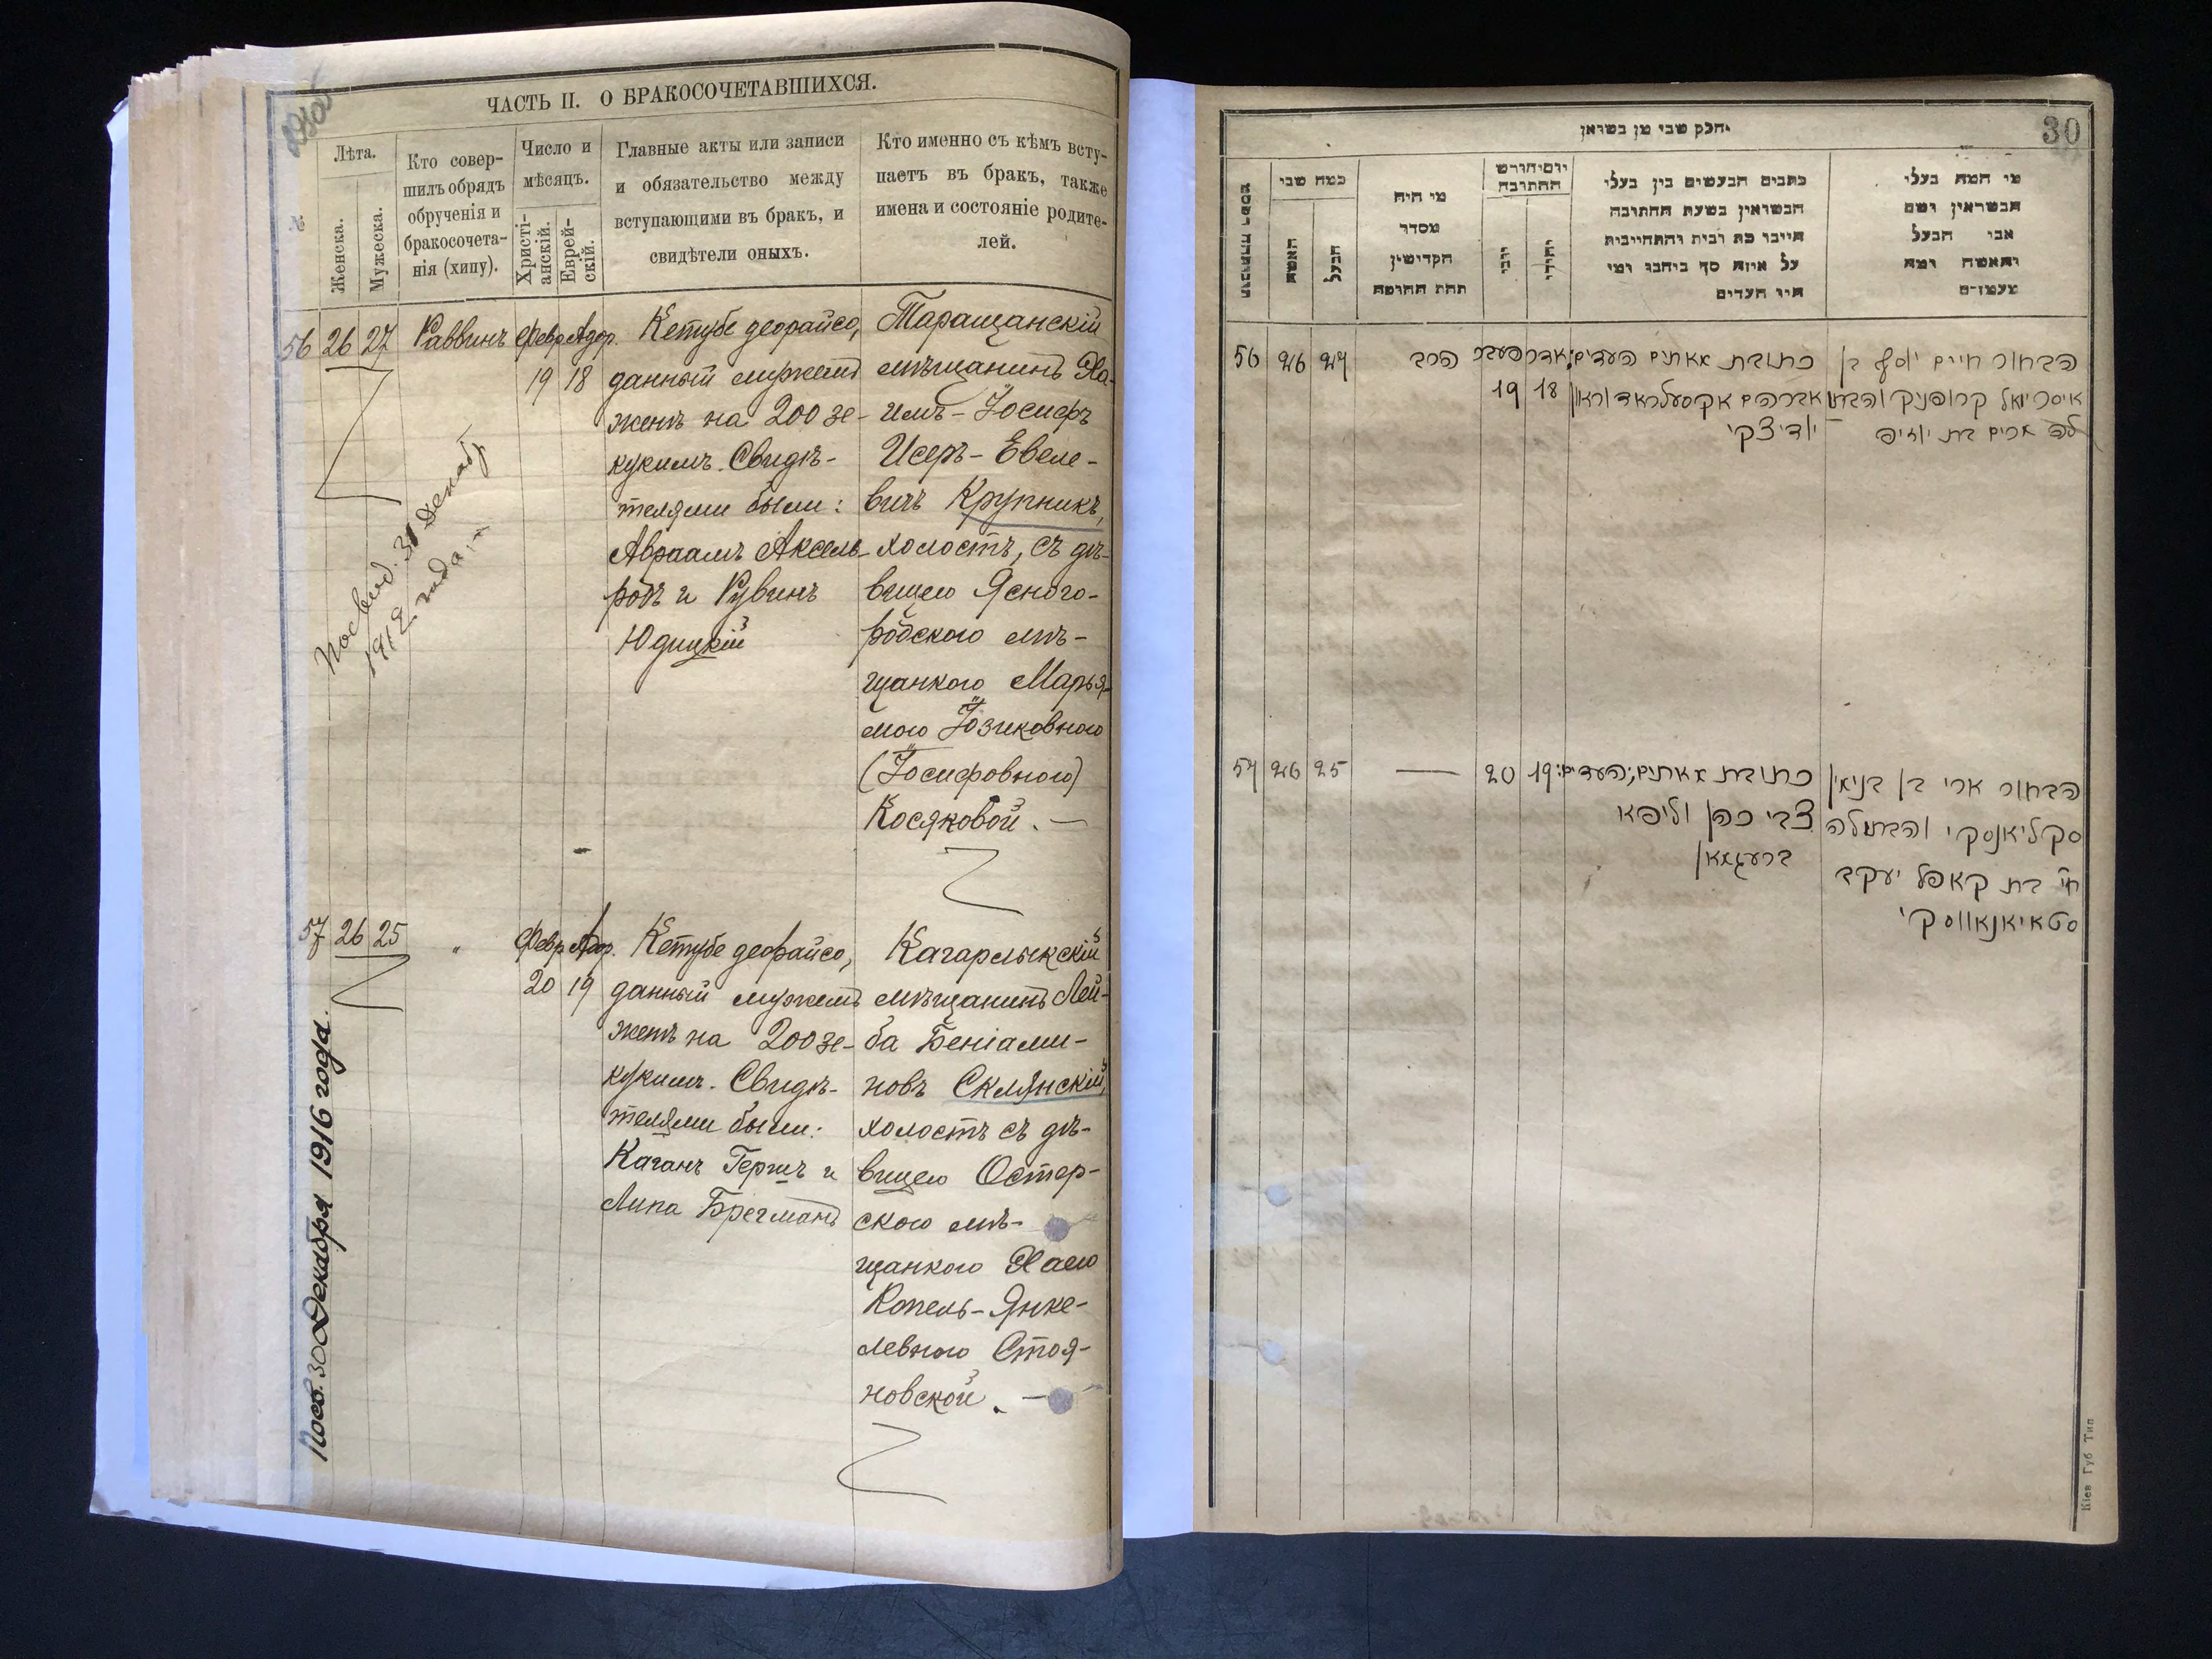 ЧАСТЬ II. О БРАКОСОЧЕТАВШИХСЯ.
№
Лѣта.
Женска.
Мужеска.
Кто совер-
шилъ обрядъ
обрученія и
бракосочета-
нія (хипу).
Число и
мѣсяцъ.
Христі-
анскій.
Еврей-
скій.
Главные акты или записи
и обязательство между
вступающими въ бракъ, и
свидѣтели оныхъ.
Кто именно съ кѣмъ всту-
паетъ въ бракъ, также
имена и состояніе родите-
лей.
56 26 27 Раввинъ Февр. Адор.
19 18
Кетубе деорайсо,
данный мужемъ
женѣ на 200 зе-
кукимъ. Свидѣ-
телями были:
Авраамъ Аксель-
родъ и Рувинъ
Юдицкій
Таращанскій
мѣщанинъ Ха-
имъ-Іосифъ
Исеръ-Евеле-
вичъ Крупникъ,
холостъ, съ дѣ-
вицею Ясного-
родского мѣ-
щанкою Марья-
мою Іозиковною
(Іосифовною)
Косяковой. —
30 Декабр
1912 года
57 26 25 " Февр. Адор.
20 19
Кетубе деорайсо,
данный мужемъ
женѣ на 200 зе-
кукимъ. Свидѣ-
телями были:
Каганъ Гершъ и
Липа Брегманъ
Кагарлыкскій
мѣщанинъ Лей-
ба Беніами-
новъ Склянскій,
холостъ съ дѣ-
вицею Остер-
ского мѣ-
щанкою Хаею
Копель-Янке-
левною Стоя-
новской. —
30 Декабря 1916 года.
חלק שני מן נשואין.
30
כמה שני
האשה
הבעל
מי היה
מסדר
הקדושין
תחת החופה
יום וחודש
החתונה
יוני
יהודי
כתבים הנעשים בין בעלי
הנשואין בשעת החתונה
היינו כת רבית והתחייבות
על איזה סך ביחבו ומי
היו העדים
מי המה בעלי
הנשואין ושם
אבי הבעל
והאשה ומה
מעמדם
56 26 27 הרב
19 18
כתובת מאתים העדים:
אברהם אקסעלראד וראובן
יודיצקי
הבחור חיים יוסף בן
קרופניק והבתו
57 26 25 — 20 19
כתובת מאתים, העדים:
צבי כהן וליפא
ברעגמאן
הבחור ארי בן בנימין
סקליאנסקי והבתולה
חי' בת קאפל יעקב
סטאיאנאווסקי
Кіев Губ Тип